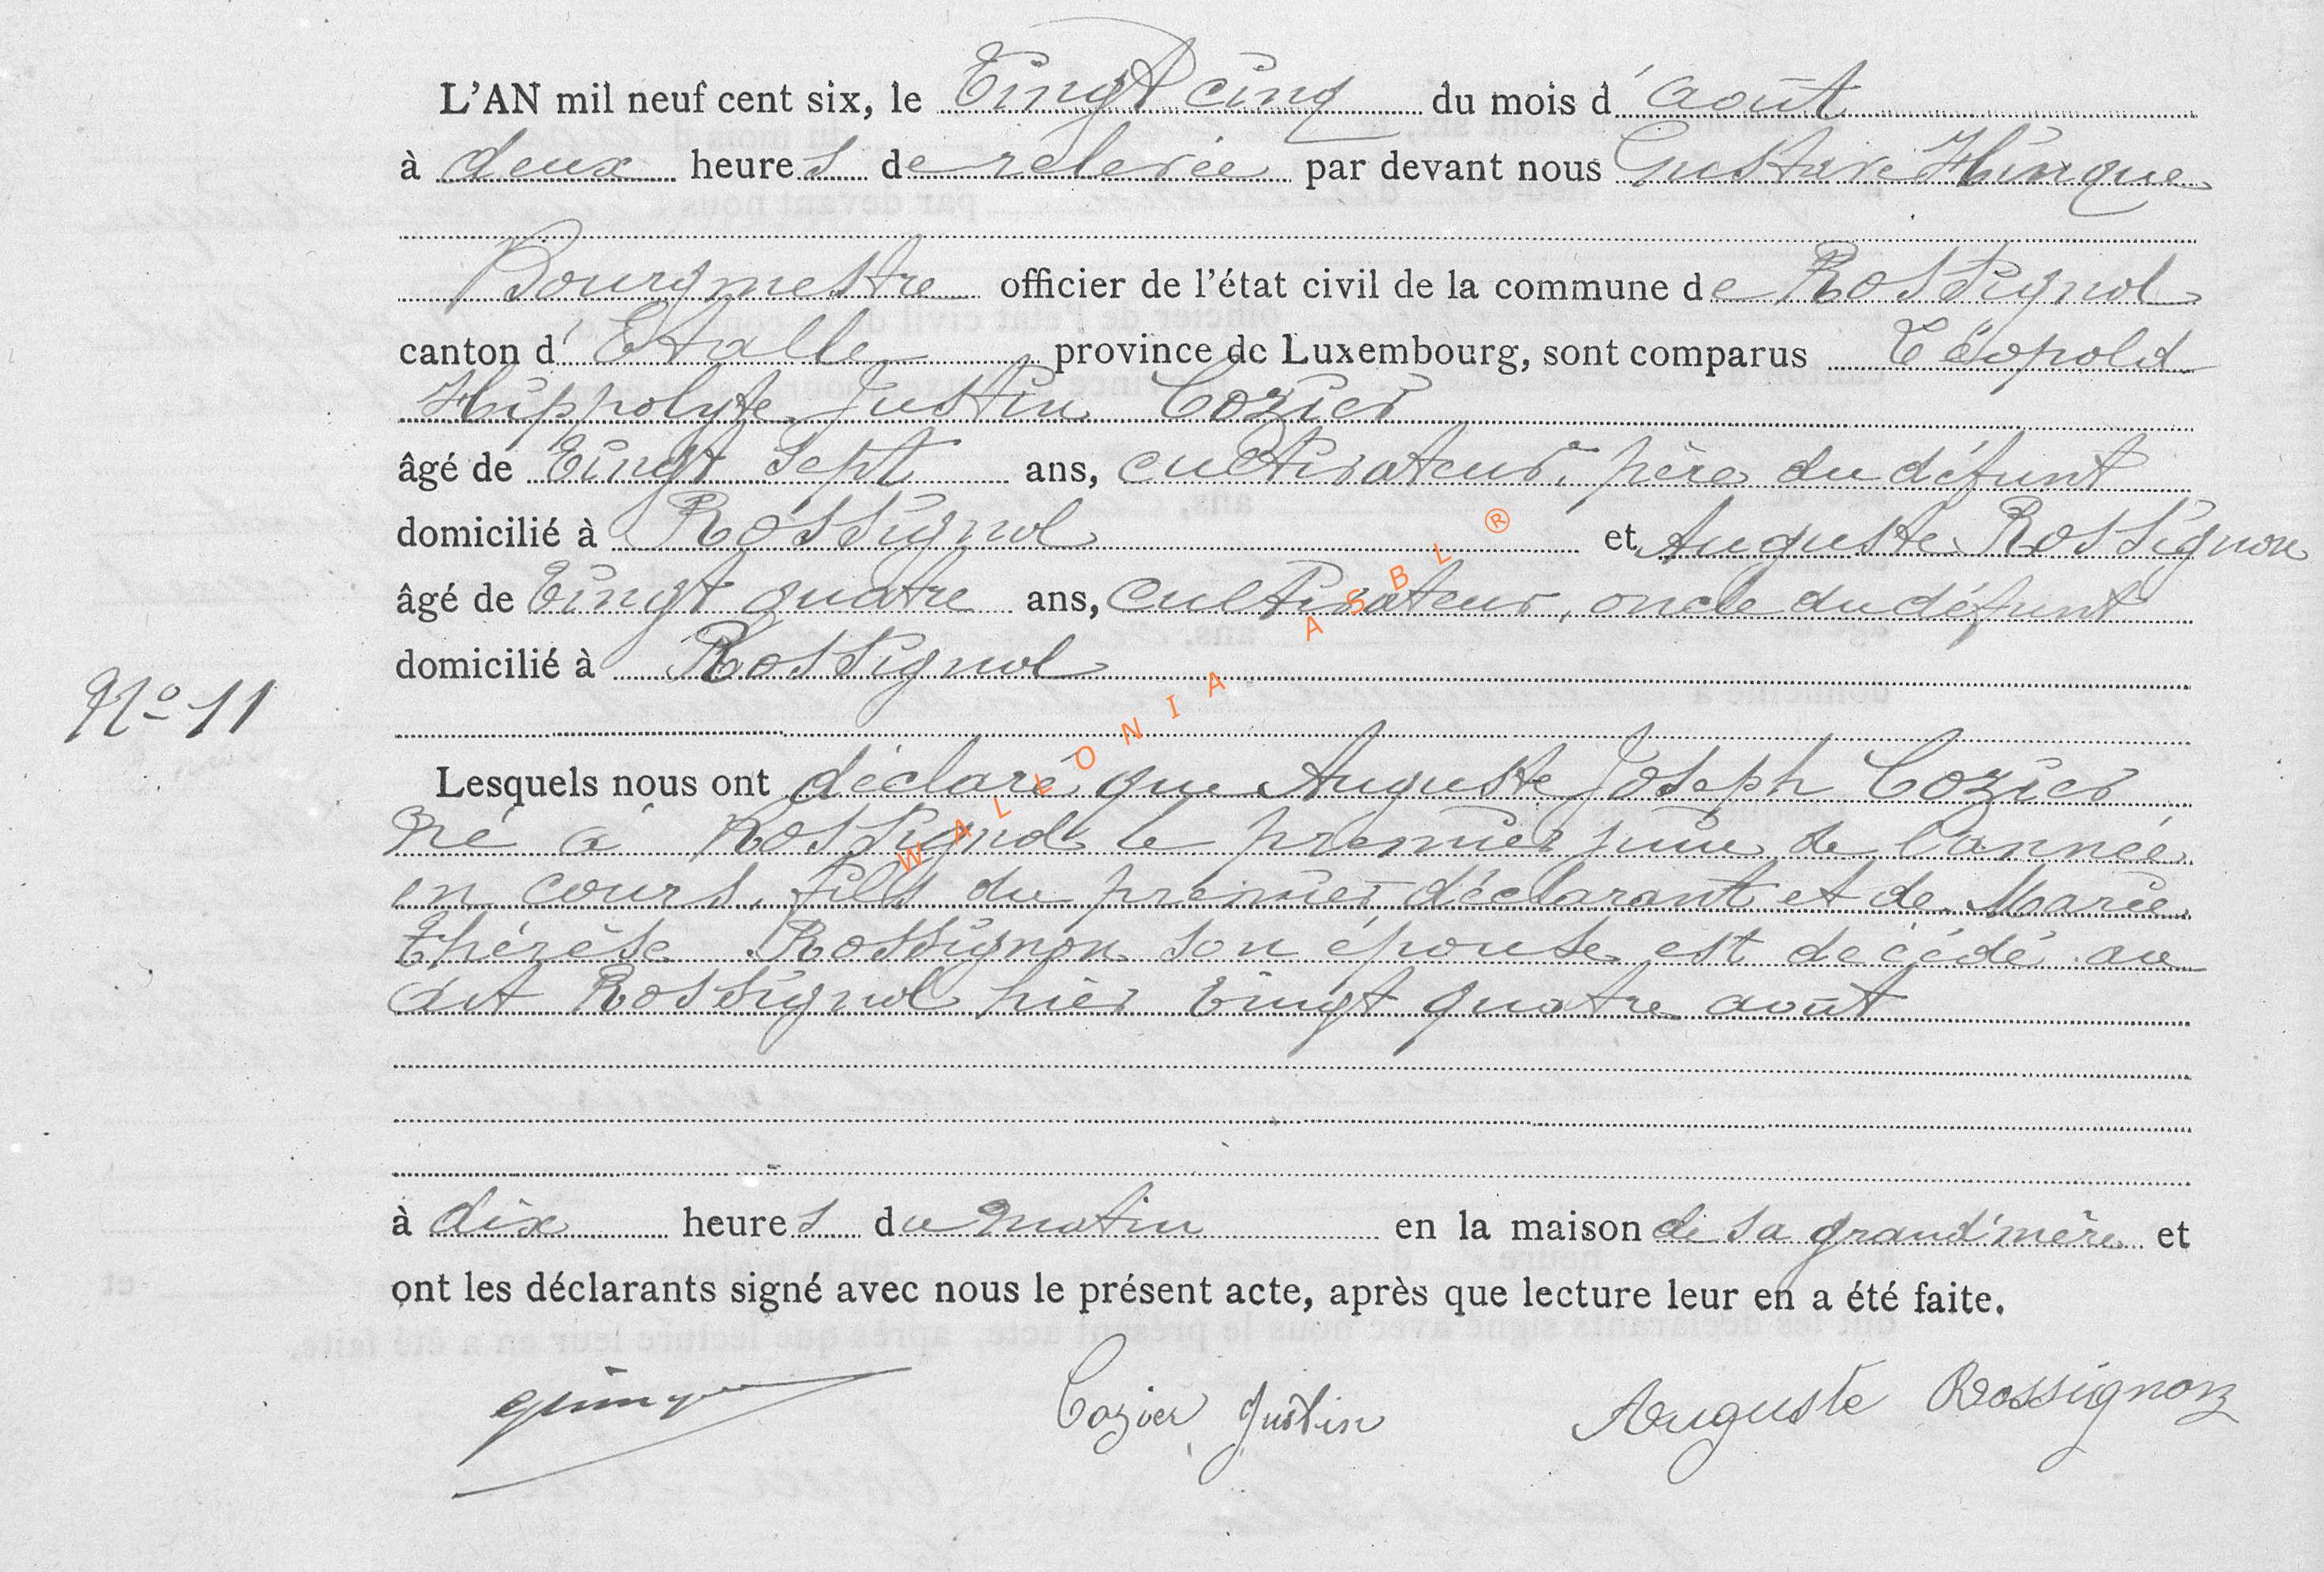 L'AN mil neuf cent six, le Vingt cinq du mois d'août
à deux heures de relevée par devant nous Gustave Hinque
Bourgmestre officier de l'état civil de la commune de Rossignol
canton d'Etalle province de Luxembourg, sont comparus Léopold
Hippolyte Justin Cozier
âgé de Vingt Sept ans, cultivateur, père du défunt
domicilié à Rossignol et Auguste Rossignon
âgé de Vingt quatre ans, cultivateur, oncle du défunt
domicilié à Rossignol
No 11
Lesquels nous ont déclaré que Auguste Joseph Cozier
Né à Rossignol le premier juin de l'année
en cours, fils du premier déclarant et de Marie
Thérèse Rossignon son épouse est décédé au
dit Rossignol hier vingt quatre août
à dix heures du matin en la maison de sa grand'mère et
ont les déclarants signé avec nous le présent acte, après que lecture leur en a été faite.
Cozier Justin Auguste Rossignon
WALLONIA ASBL ®